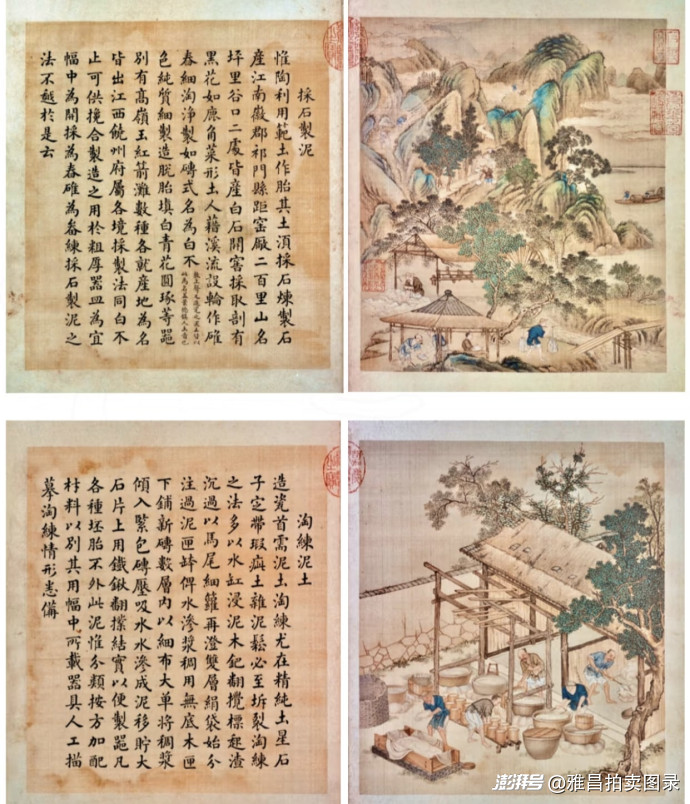 採石製泥
惟陶利用範土作胎其土須採石煉製石
產江南徽郡祁門縣距窑厰二百里山名
坪里谷口二處皆產白石開窖採取剖有
黑花如鹿角菜形土人藉溪流設輪作碓
舂細淘淨製如磚式名為白不
色純質細製造脫胎填白青花圓琢等噐
別有高嶺玉紅箭灘數種各就產地為名
皆出江西饒州府屬各境採製法同白不
止可供攙合製造之用於粗厚噐皿為宜
幅中為開採為舂碓為畚練採石製泥之
法不越於是云
淘練泥土
造瓷首需泥土淘練尤在精純土星石
子定帶瑕疵土雜泥鬆必至坼裂淘練
之法多以水缸浸泥木鈀翻攪標起渣
沉過以馬尾細籮再澄雙層絹袋始分
注過泥匣缽俾水滲漿稠用無底木匣
下鋪新磚數層內以細布大單將稠漿
傾入緊包磚壓吸水水滲成泥移貯大
石片上用鐵鍬翻撲結實以便製噐凡
各種坯胎不外此泥惟分類按方加配
材料以別其用幅中所載器具人工描
摹淘練情形悉備
澎湃号@雅昌拍卖图录